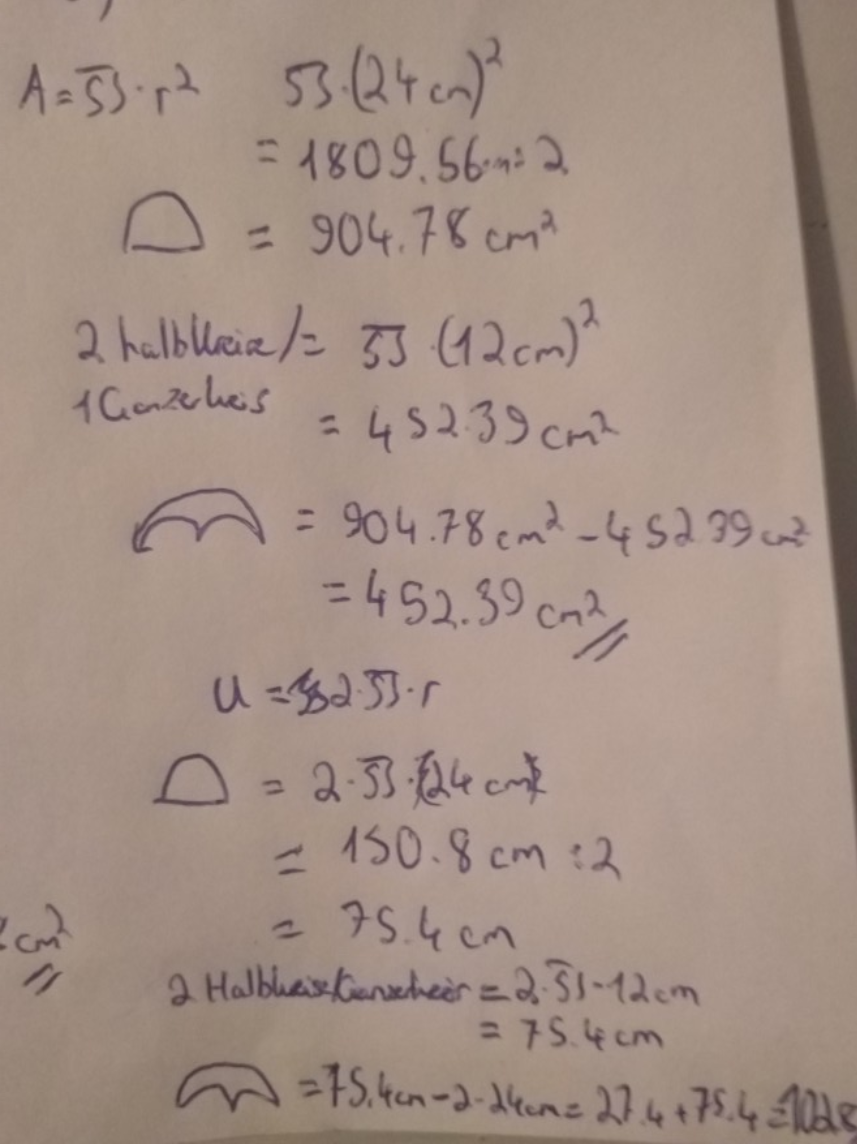 A = π · r² π · (24 cm)²
= 1809.56 cm² : 2
= 904.78 cm²
2 halbkreise / = π · (12cm)²
1 Ganzerkreis
= 452.39 cm²
= 904.78 cm² - 452.39 cm²
= 452.39 cm²
U = 2 · π · r
= 2 · π · 24 cm
= 150.8 cm : 2
cm²
= 75.4 cm
2 Halbkreise/Ganzerkreis = 2 · π · 12cm
= 75.4 cm
= 75.4cm - 2 · 24cm = 27.4 + 75.4 = 102.8